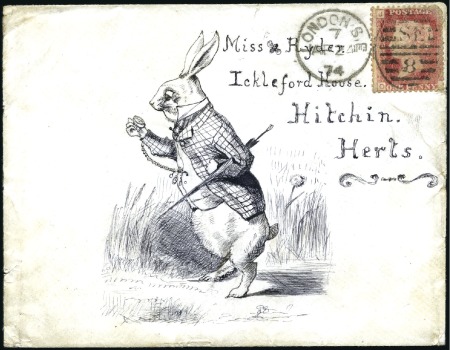 Miss Ryder
Ickleford House.
Hitchin.
Herts.
LONDON S.E
7
74
POSTAGE
S.E
8